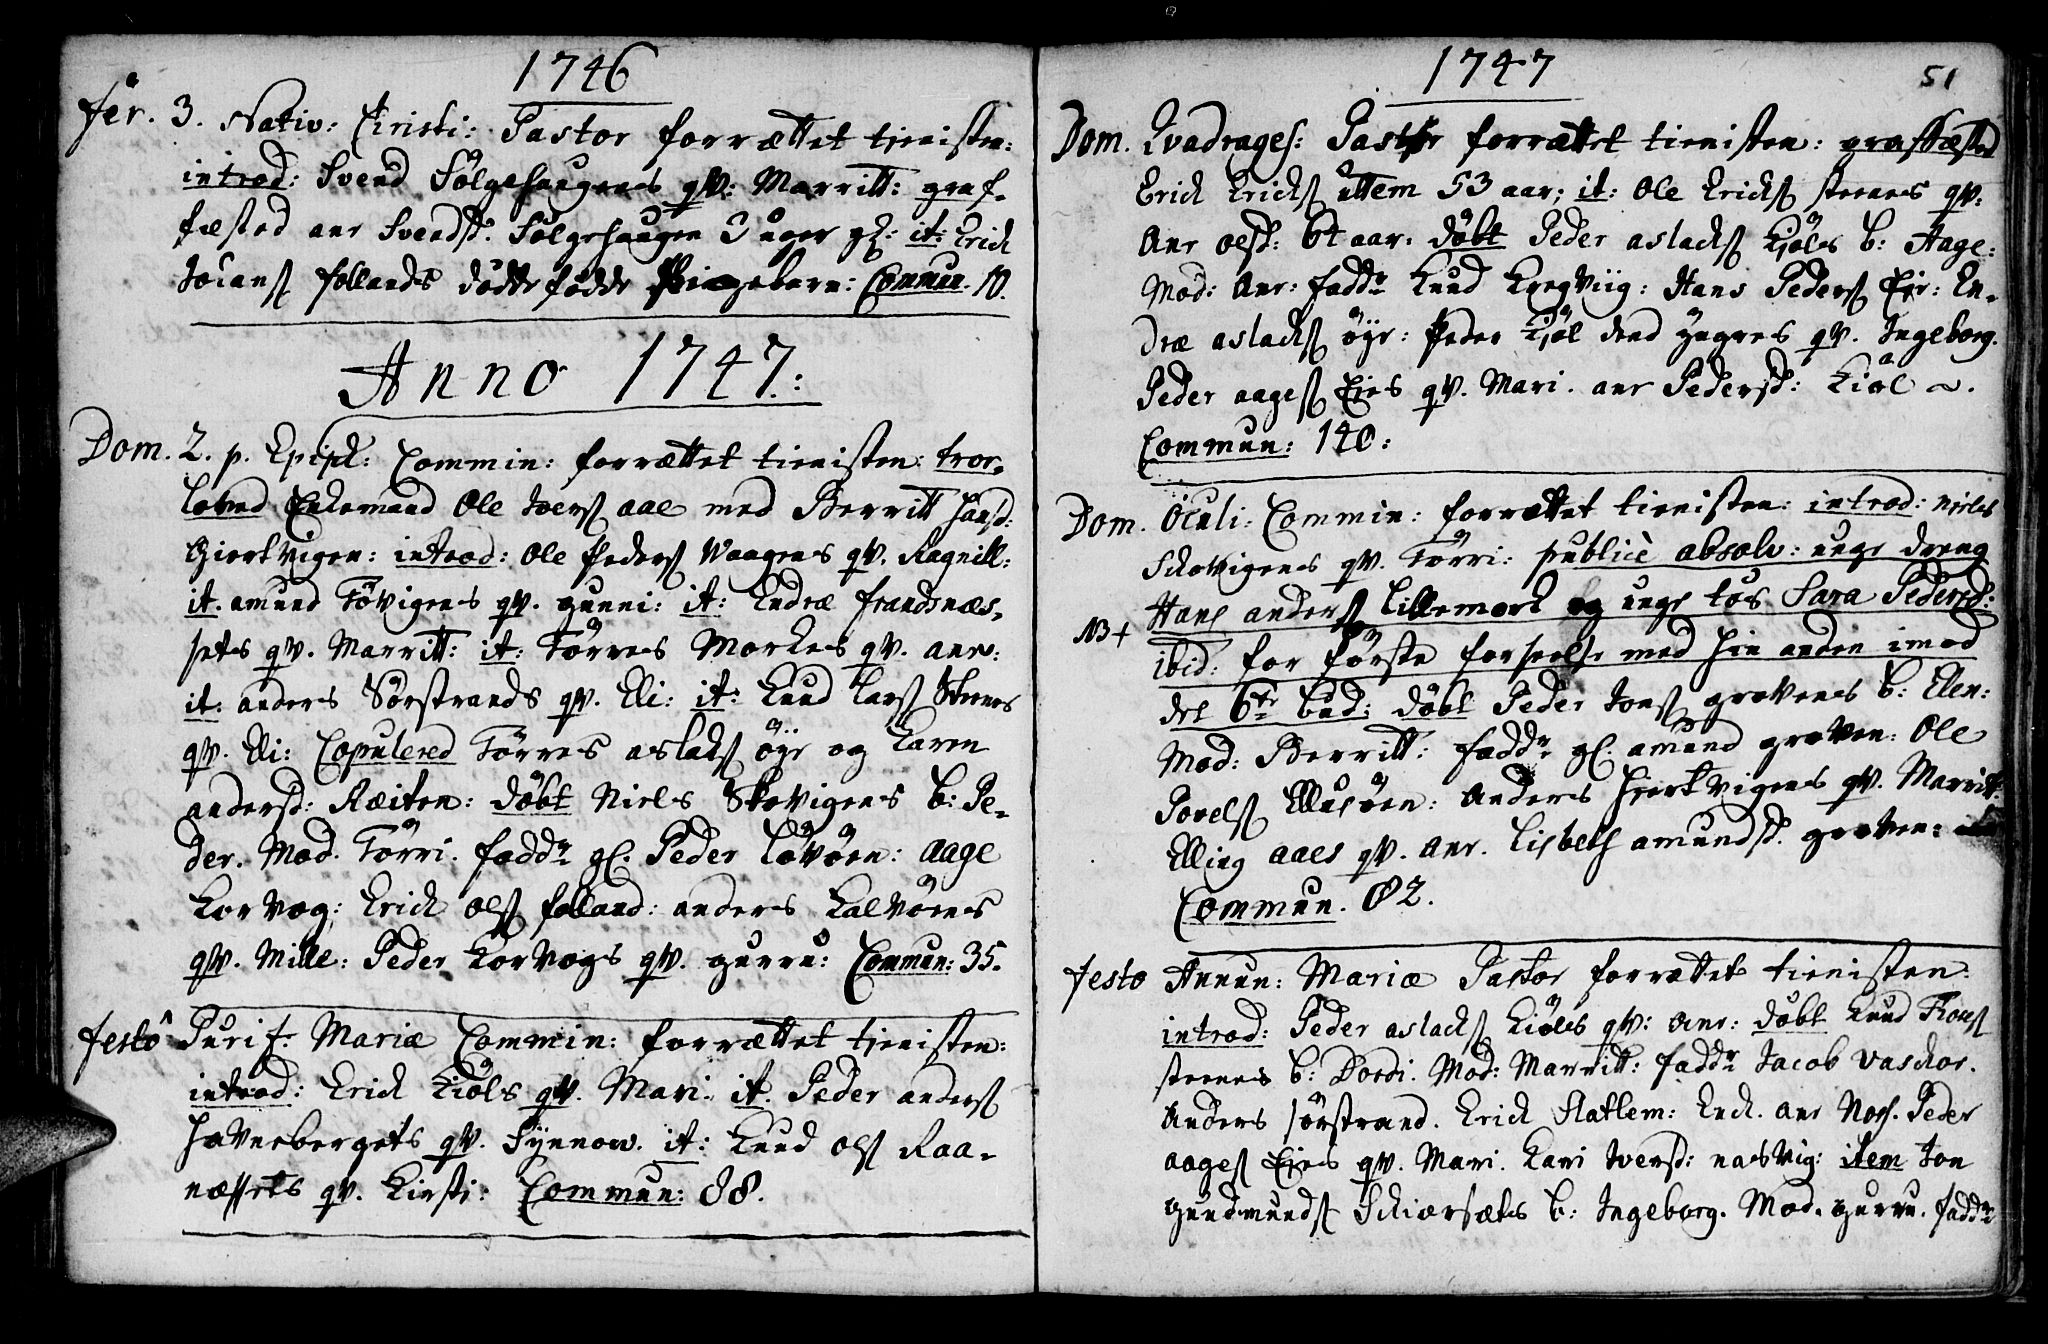 1746
fer. 3. Nativ: Christi: Pastor forrættet tienisten:
introd: Svend Sölgehaugens qv: Marritt: graf-
fæsted anr Svendsd. Sölgehaugen 3 uger gl: it: Erich
Johans follands dötter födde Commun. 10.
Anno 1747:
Dom. 2. p. Epiph: Commin: forrættet tienisten: tror-
lovad Enkemand Ole Ivers aae med Berritt Hansd:
Gjerkvigen: introd: Ole Peders Waagens qv. Ragnill:
it. amund Tövigens qv. gunni: it: Endræ frandsnæs-
sets qv. Marritt: it: Törres Morkes qv. anr:
it: anders Sörstrands qv. Eli: it: Knud Lars Steenes
qv. Eli: Copulered Törres aslaks öyr og Karen
andersd: Ræiten: döbt Niels Skovigens b: Pe-
der. Mod. Törri. fadd: gl. Peder Lövöen: Aage
Korvog: Erich Ols folland: anders Kalvöens
qv. Mille: Peder Korvogs qv. gurru: Commun: 35.
festo Purif: Mariæ Commin: forrættet tienisten:
introd: Erich Kiöls qv. Mari: it. Peder anders
Hovnebergets qv. Synnow. it: Knud ols Raa-
næssets qv. Kirsti: Commun: 88.
1747
51
Dom. Qvadrages: Pastor forrættet tienisten: graffæsted
Erich Ericks uttem 53 aar; it: Ole Ericks steenes qv.
Anr olsd: 61 aar. döbt Peder aslacks Kiöls b: Aage:
Mod: Anr: fadd: Knud Kregviig: Hans Peders Eje: En-
dræ aslacks öyr: Peder Kjöl qv. Ingeborg.
Peder aages Ejes qv. Mari. anr Pedersd: Kiöl
Commun: 140:
Dom. Oculi: Commin: forrættet tienisten: introd: Niels
Schovigens qv. Törri: publicè absolv: unge dreng
Hans anders Lillemork og unge tös Sara Pedersd:
NB + ibid: for förste forseelse med hin anden imod
det 6te bud: döbt Peder Jons grovens b: Elen:
Mod: Berritt: fadd: gl. amund groven: Ole
Povels Ellusöen: Anders Hierkvigens qv. Marritt
Elling aaes qv. anr. Lisbeth amundsd. groven:
Commun. 82.
festo Annun: Mariæ Pastor forrættet tienisten:
introd: Peder aslacks Kiöls qv: Anr: döbt Knud
steenes b: Dordi. Mod: Marritt: fadd: Jacob Vaschor.
Anders sörstrand. Erich Slatlem: Ench. anr Peder
aages Ejes qv. Mari. Kari Iversd: nasvig: item Jon
gundmunds Schiorsæts b: Ingeborg. Mod. gurru. fadd: